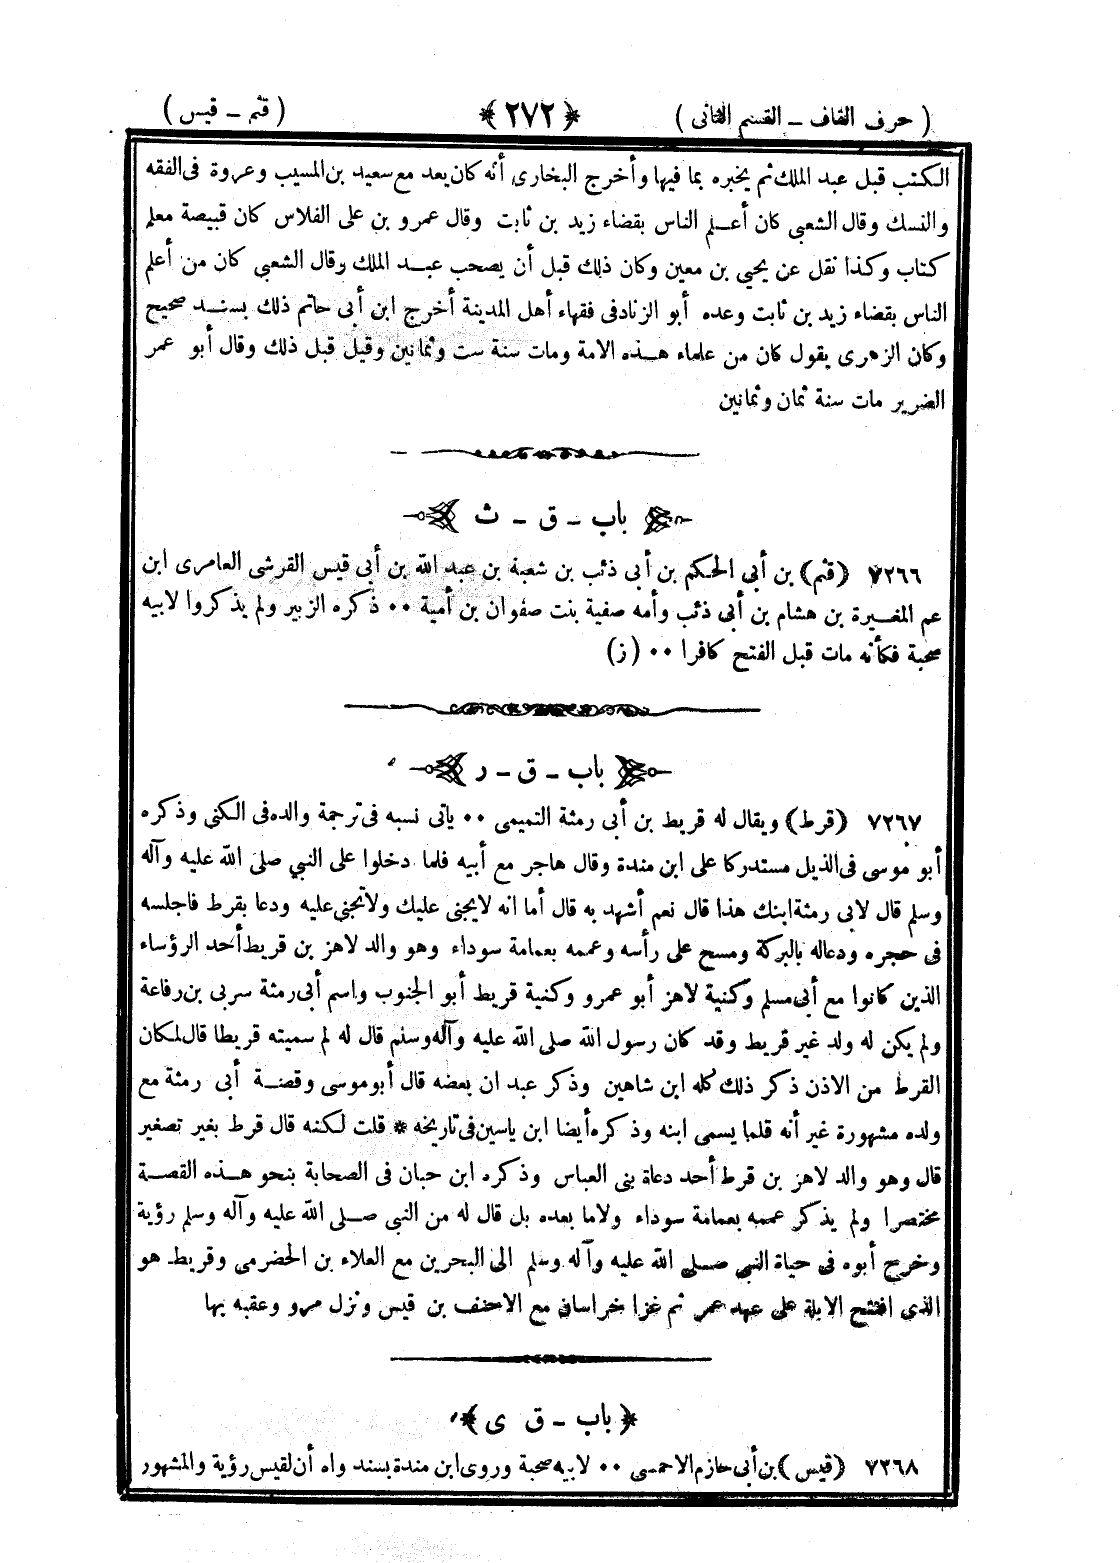 ( حرف القاف ـ القسم الثانى ) ﴿ ٢٧٢ ﴾ ( قثم ـ قيس )
الكتب قبل عبد الملك ثم يخبره بما فيها وأخرج البخارى أنه كان يعد مع سعيد بن المسيب وعروة فى الفقه
والنسك وقال الشعبى كان أعلم الناس بقضاء زيد بن ثابت وقال عمرو بن على الفلاس كان قبيصة معلم
كتاب وكذا نقل عن يحيى بن معين وكان ذلك قبل أن يصحب عبد الملك وقال الشعبى كان من أعلم
الناس بقضاء زيد بن ثابت وعده أبو الزناد فى فقهاء أهل المدينة أخرج ابن أبى حاتم ذلك بسند صحيح
وكان الزهرى يقول كان من علماء هذه الامة ومات سنة ست وثمانين وقيل قبل ذلك وقال أبو عمر
الضرير مات سنة ثمان وثمانين
باب ـ ق ـ ث
٧٢٦٦ (قثم) بن أبى الحكم بن أبى ذئب بن شعبة بن عبد الله بن أبى قيس القرشى العامرى ابن
عم المغيرة بن هشام بن أبى ذئب وأمه صفية بنت صفوان بن أمية ٠٠ ذكره الزبير ولم يذكروا لابيه
صحبة فكأنه مات قبل الفتح كافرا ٠٠ (ز)
باب ـ ق ـ ر
٧٢٦٧ (قرط) ويقال له قريط بن أبى رمثة التميمى ٠٠ يأتى نسبه فى ترجمة والده فى الكنى وذكره
أبو موسى فى الذيل مستدركا على ابن مندة وقال هاجر مع أبيه فلما دخلوا على النبي صلى الله عليه وآله
وسلم قال لابى رمثة ابنك هذا قال نعم أشهد به قال أما انه لا يجنى عليك ولا تجنى عليه ودعا بقرط فاجلسه
فى حجره ودعا له بالبركة ومسح على رأسه وعممه بعمامة سوداء وهو والد لاهز بن قريط أحد الرؤساء
الذين كانوا مع أبى مسلم وكنية لاهز أبو عمرو وكنية قريط أبو الجنوب واسم أبى رمثة سربى بن رفاعة
ولم يكن له ولد غير قريط وقد كان رسول الله صلى الله عليه وآله وسلم قال له لم سميته قريطا قال لمكان
القرط من الاذن ذكر ذلك كله ابن شاهين وذكر عبد ان بعضه قال أبو موسى وقصة أبى رمثة مع
ولده مشهورة غير أنه قلما يسمى ابنه وذكره أيضا ابن ياسين فى تاريخه * قلت لكنه قال قرط بغير تصغير
قال وهو والد لاهز بن قرط أحد دعاة بنى العباس وذكره ابن حبان فى الصحابة بنحو هذه القصة
مختصرا ولم يذكر عممه بعمامة سوداء ولا ما بعده بل قال له من النبي صلى الله عليه وآله وسلم رؤية
وخرج أبوه فى حياة النبي صلى الله عليه وآله وسلم الى البحرين مع العلاء بن الحضرمى وقريط هو
الذى افتتح الابلة على عهد عمر ثم غزا خراسان مع الاحنف بن قيس ونزل مرو وعقبه بها
﴿ باب ـ ق ى ﴾
٧٢٦٨ (قيس) بن أبى حازم الاحمسى ٠٠ لابيه صحبة وروى ابن مندة بسند واه أن لقيس رؤية والمشهور